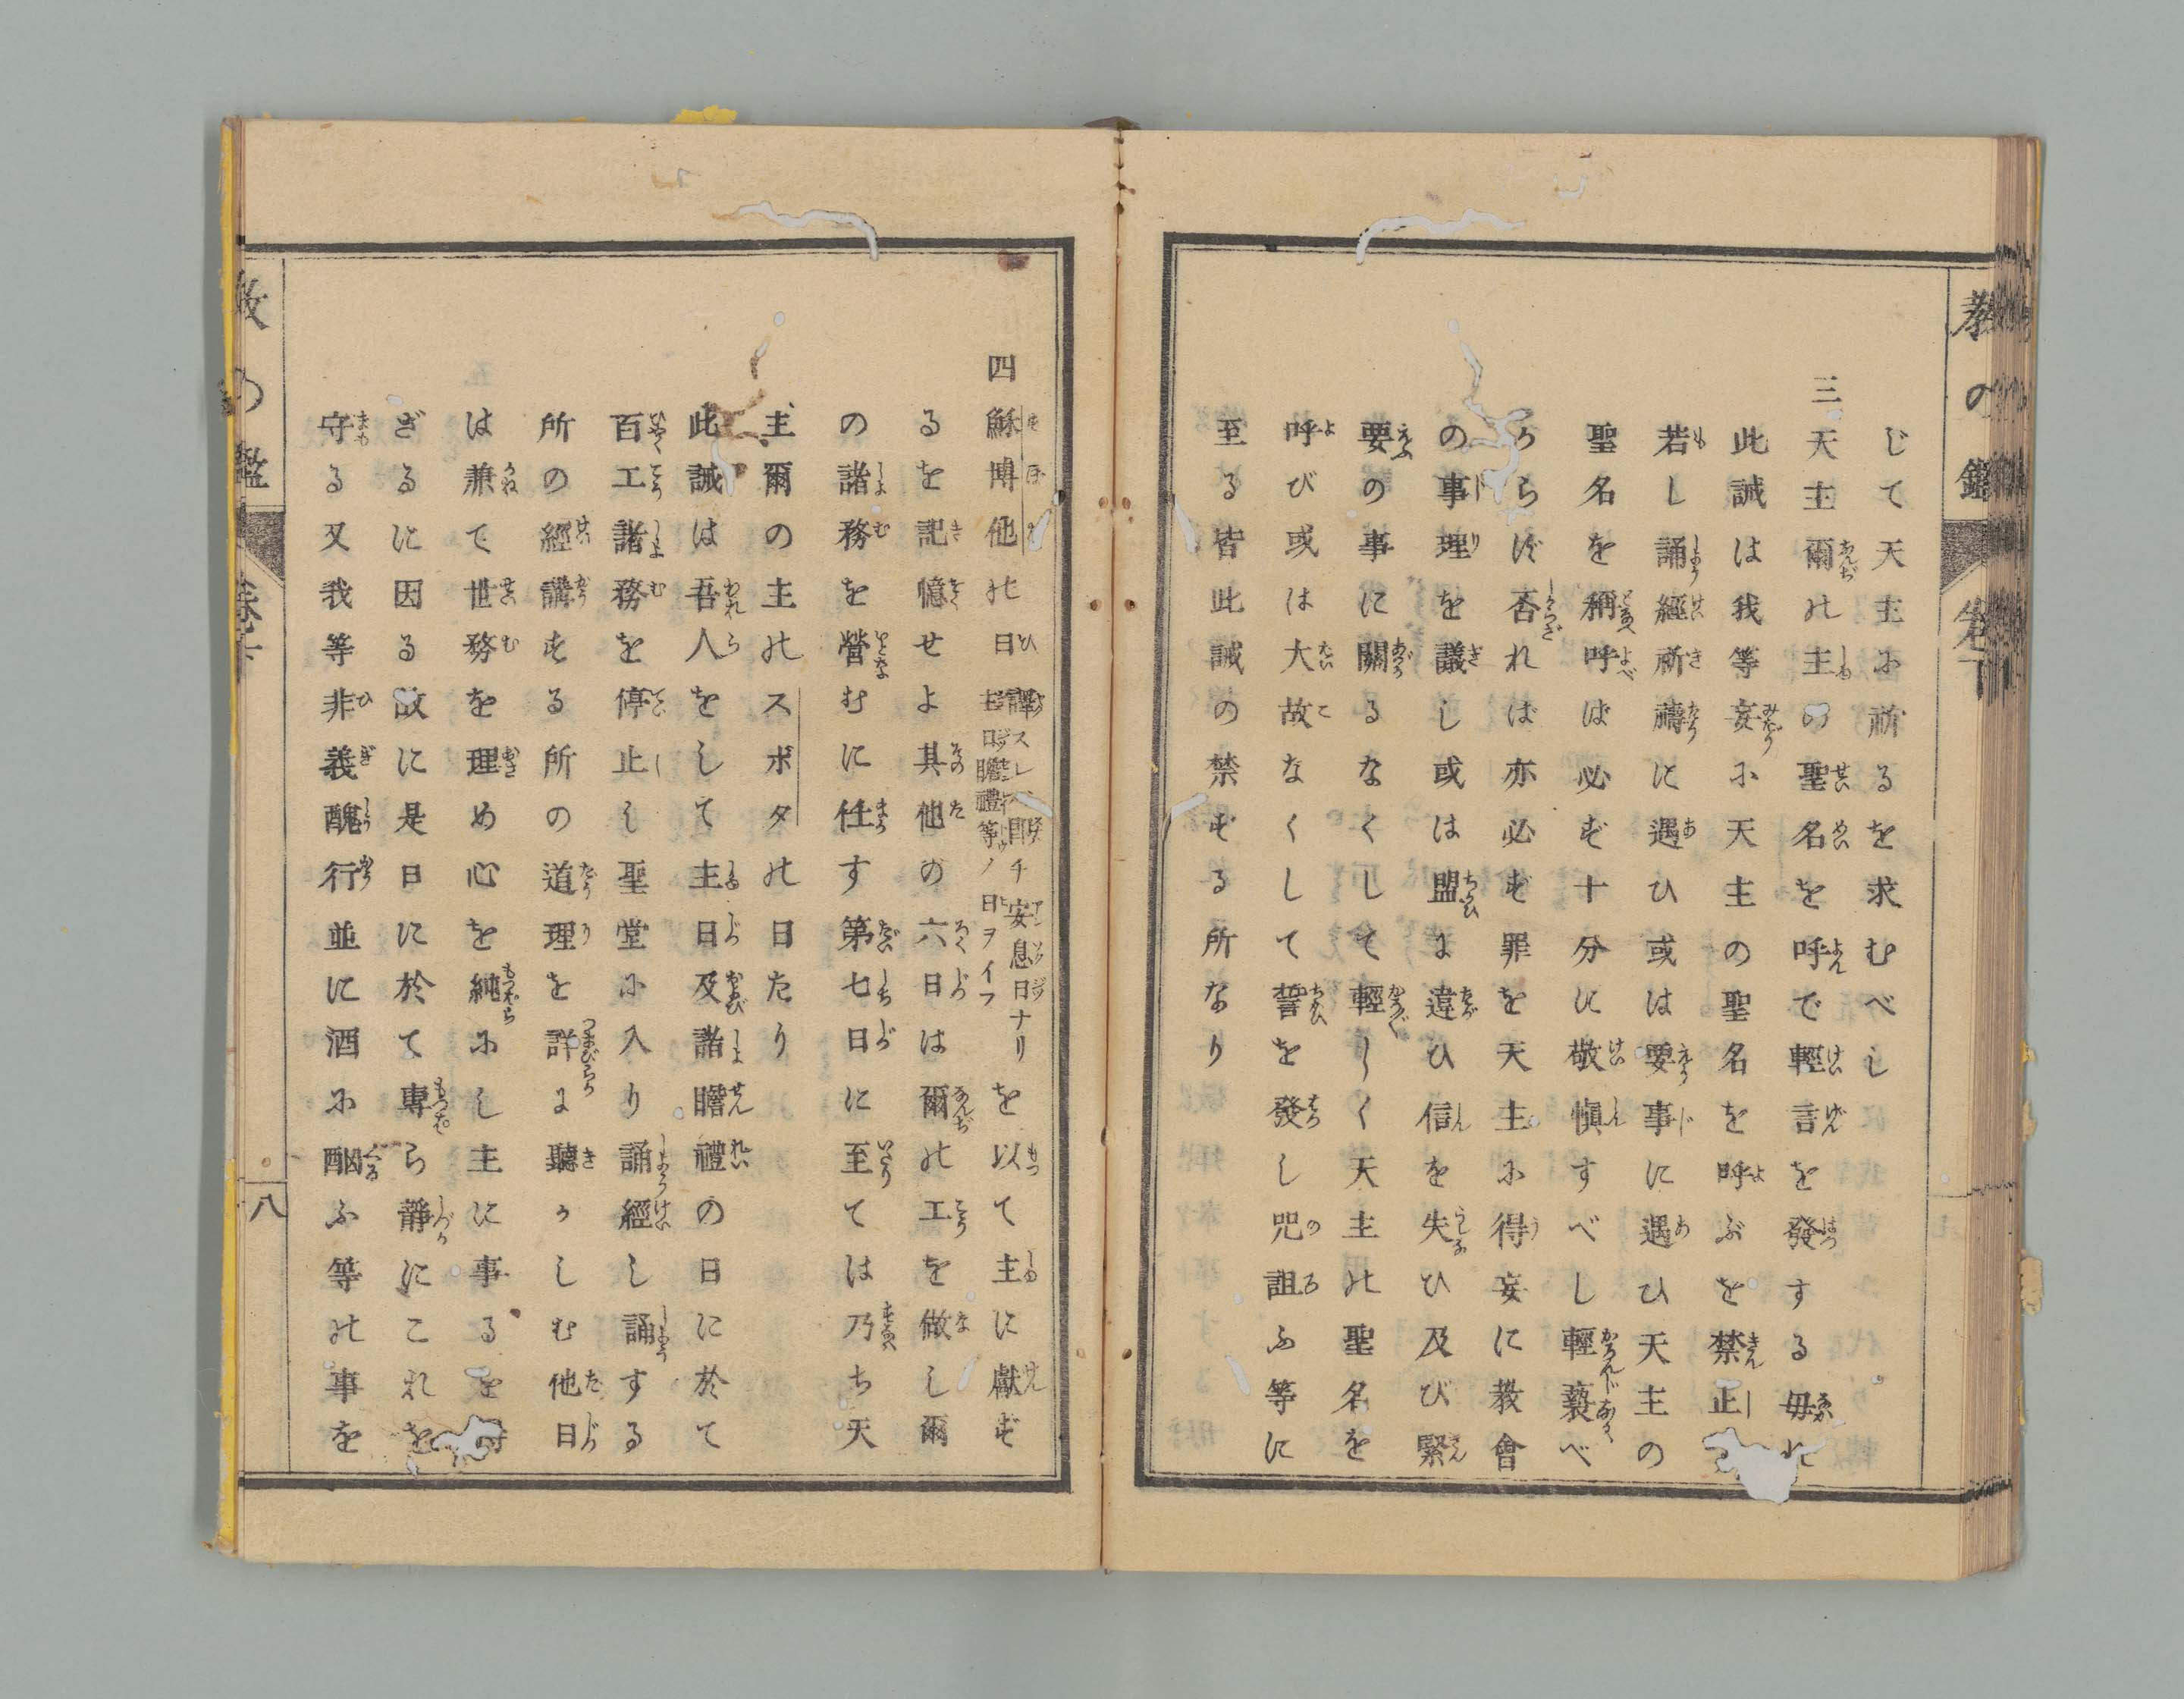 教の鑑 卷下
じて天主に祈るを求むべし
三 天主爾の主の聖名を呼で輕言を發する毋れ
此誡は我等妄に天主の聖名を呼ぶを禁止
若し誦經祈禱に遇ひ或は要事に遇ひ天主の
聖名を稱呼ば必ず十分に敬愼すべし輕藐べ
からず否れば亦必ず罪を天主に得妄に教會
の事理を議し或は盟に違ひ信を失ひ及び緊
要の事に關るなくして輕〱く天主の聖名を
呼び或は大故なくして誓を發し咒詛ふ等に
至る皆此誡の禁ずる所なり
四 穌博他の日 譯スレハ即チ安息日ナリ主日瞻禮等ノ日ヲイフ を以て主に獻ず
るを記憶せよ其他の六日は爾の工を做し爾
の諸務を營むに任す第七日に至ては乃ち天
主爾の主のスボタの日たり
此誡は吾人をして主日及諸瞻禮の日に於て
百工諸務を停止し聖堂に入り誦經し誦する
所の經講ずる所の道理を詳に聽かしむ他日
は兼て世務を理め心を純にし主に事るを
ざるに因る故に是日に於て專ら靜にこれを
守る又我等非義醜行並に酒に酗ふ等の事を
教の鑑 卷下 八